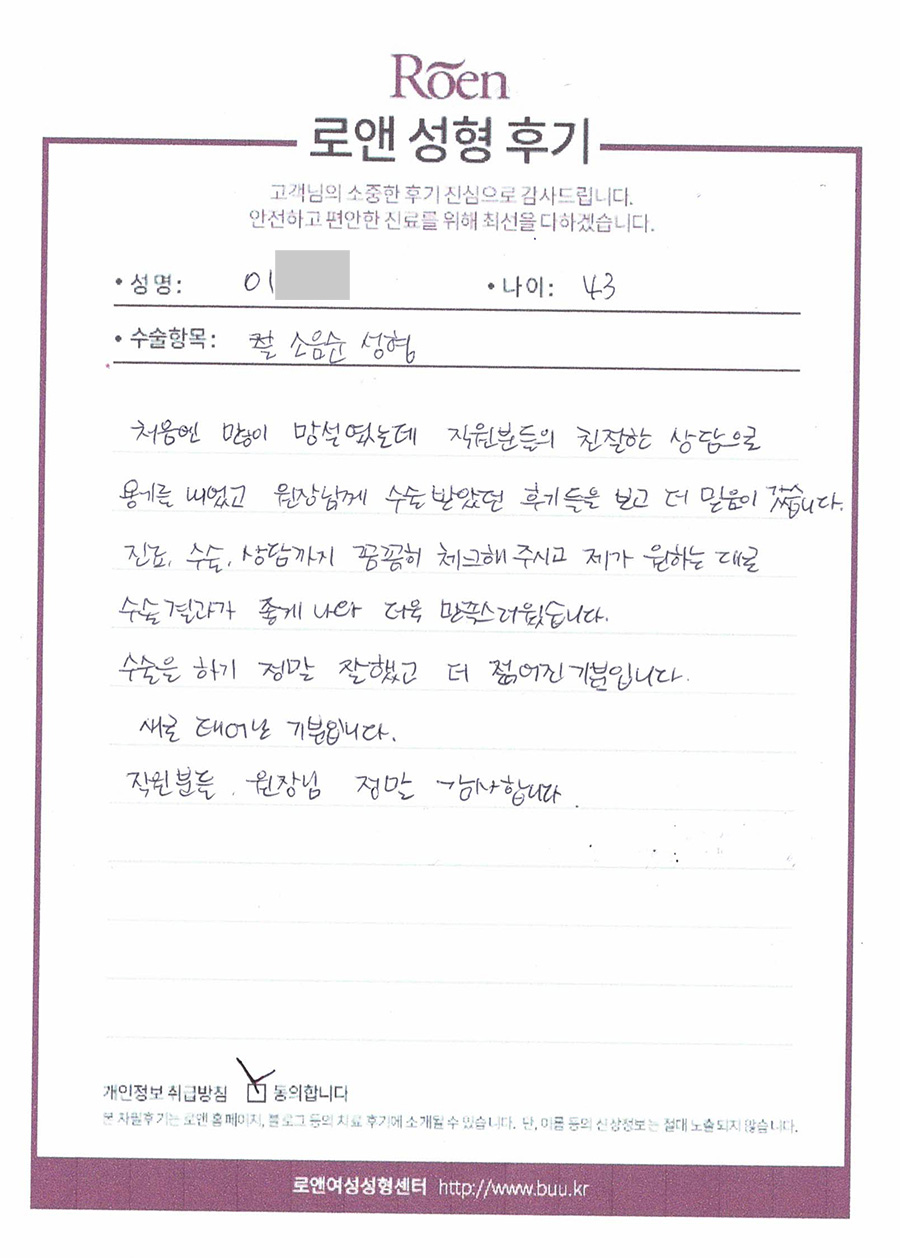 Rōen
로앤 성형 후기
고객님의 소중한 후기 진심으로 감사드립니다.
안전하고 편안한 진료를 위해 최선을 다하겠습니다.
• 성명: 이 • 나이: 43
• 수술항목: 질 소음순 성형
처음엔 많이 망설였는데 직원분들의 친절한 상담으로
용기를 내었고 원장님께 수술 받았던 후기들을 보고 더 믿음이 갔습니다.
진료, 수술, 상담까지 꼼꼼히 체크해 주시고 제가 원하는 대로
수술 결과가 좋게 나와 더욱 만족스러웠습니다.
수술을 하기 정말 잘했고 더 젊어진 기분입니다.
새로 태어난 기분입니다.
직원분들, 원장님 정말 감사합니다.
개인정보 취급방침 ☑ 동의합니다
본 자필후기는 로앤 홈페이지, 블로그 등의 치료 후기에 소개될 수 있습니다. 단, 이름 등의 신상정보는 절대 노출되지 않습니다.
로앤여성성형센터 http://www.buu.kr